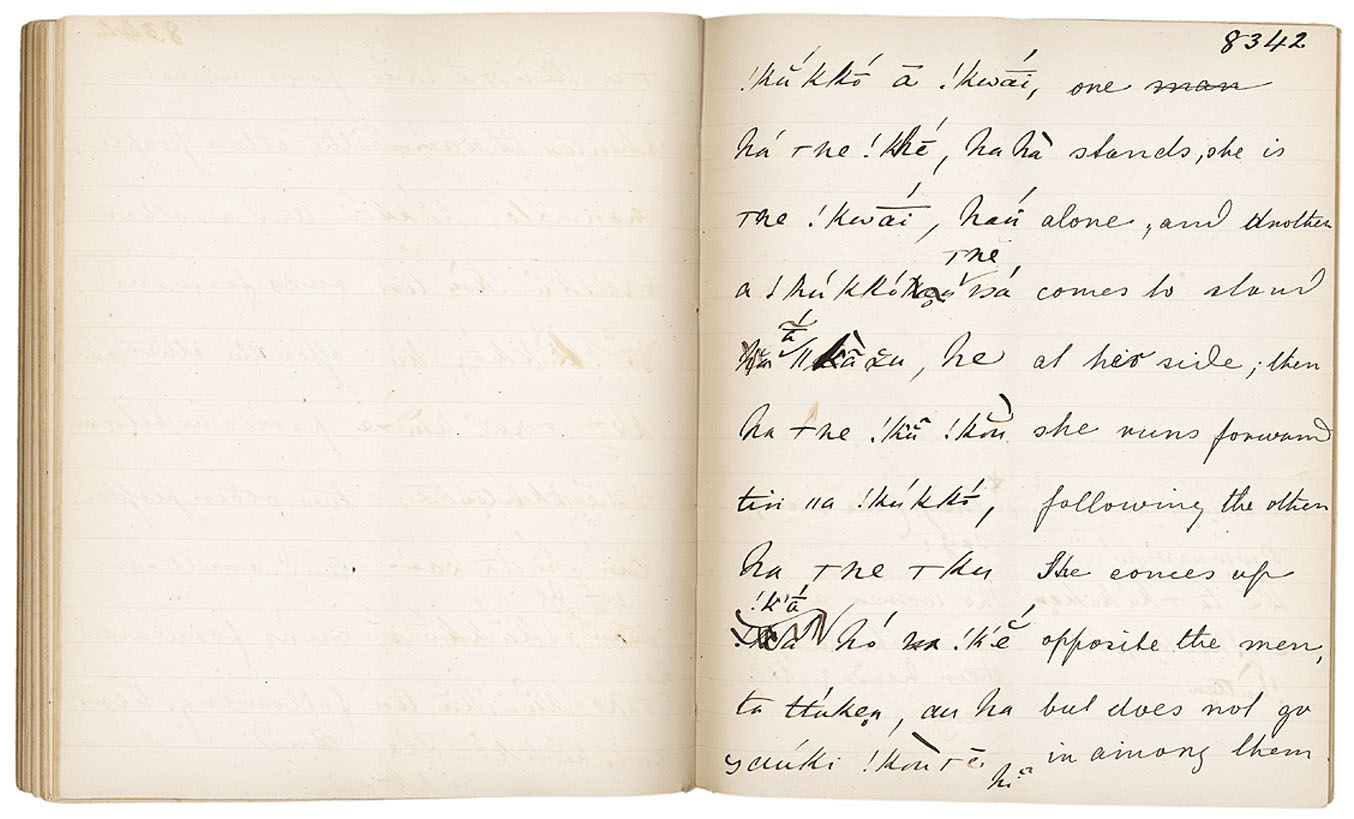 8342
!kŭ́kkó ā !kwā́i, one man
há ⊤ne !khḗ, ha hà stands, she is
⊤ne !kwā́i, haú alone, and another
⊤nĕ
a !kúkkó ssá comes to stand
he at her side; then
ha ⊤ne !kŭ̃ !kòu she runs forward
tin ııa !kúkkó, following the other
ha ⊤ne ⊤ku She comes up
!k'ā́
hó !k'ĕ́ opposite the men,
ta túken, au ha but does not go
yaúki !kòu ⊤ē hĭ in among them